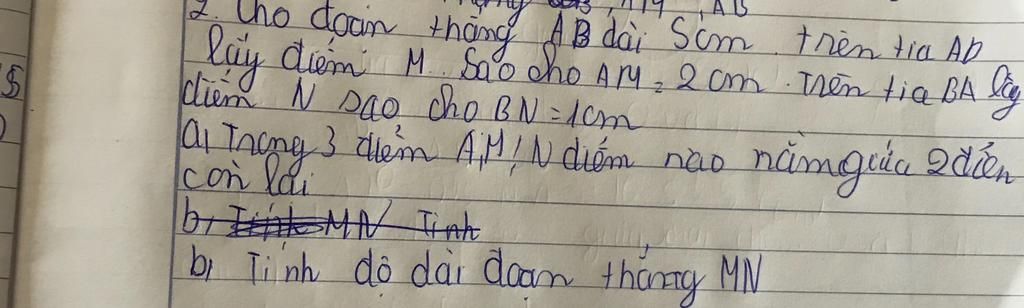 2. Cho đoạn thẳng AB dài 5cm. trên tia AB
lấy điểm M. Sao cho AM = 2 cm. Trên tia BA lấy
điểm N sao cho BN = 1cm
a) Trong 3 điểm A, M, N điểm nào nằm giữa 2 điểm
còn lại
b) Tính MN Tính
b) Tính độ dài đoạn thẳng MN